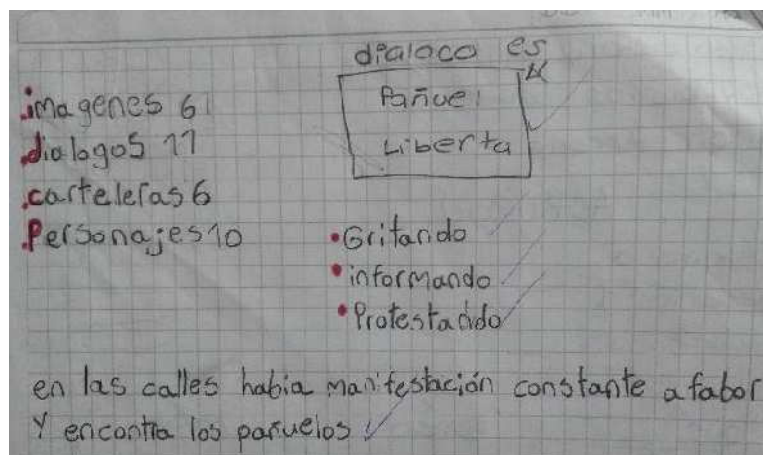 dialoco es
Pañuel
Liberta
.imagenes 6
.dialogos 11
.carteleras 6
.Personajes 10
•Gritando
•informando
•Protestando
en las calles habia manifestación constante a fabor
y encontra los pañuelos